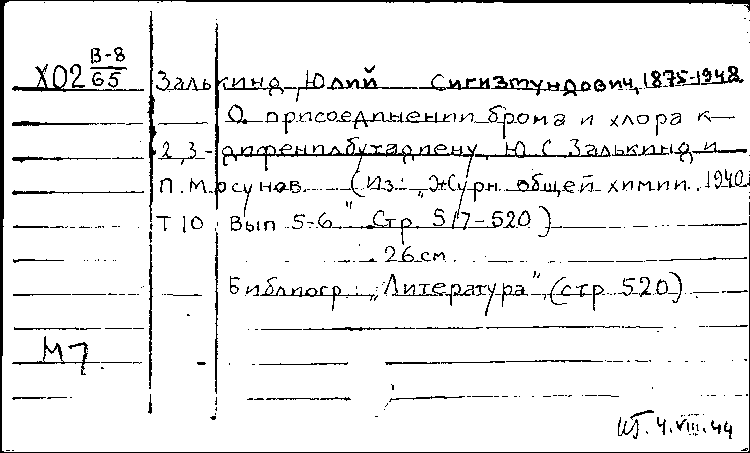 Х02 В-8/65 Залькинд, Юлий Сигизмундович, 1875-1948
О присоединении брома и хлора к
2,3-дифенилбутадиену. Ю. С. Залькинд и
П. Мосунов. (Из: „Журн. общей химии. 1940.
Т 10. Вып 5-6." Стр. 517-520)
26 см.
Библиогр.: „Литература", (стр 520)
М7.
4.VIII.44